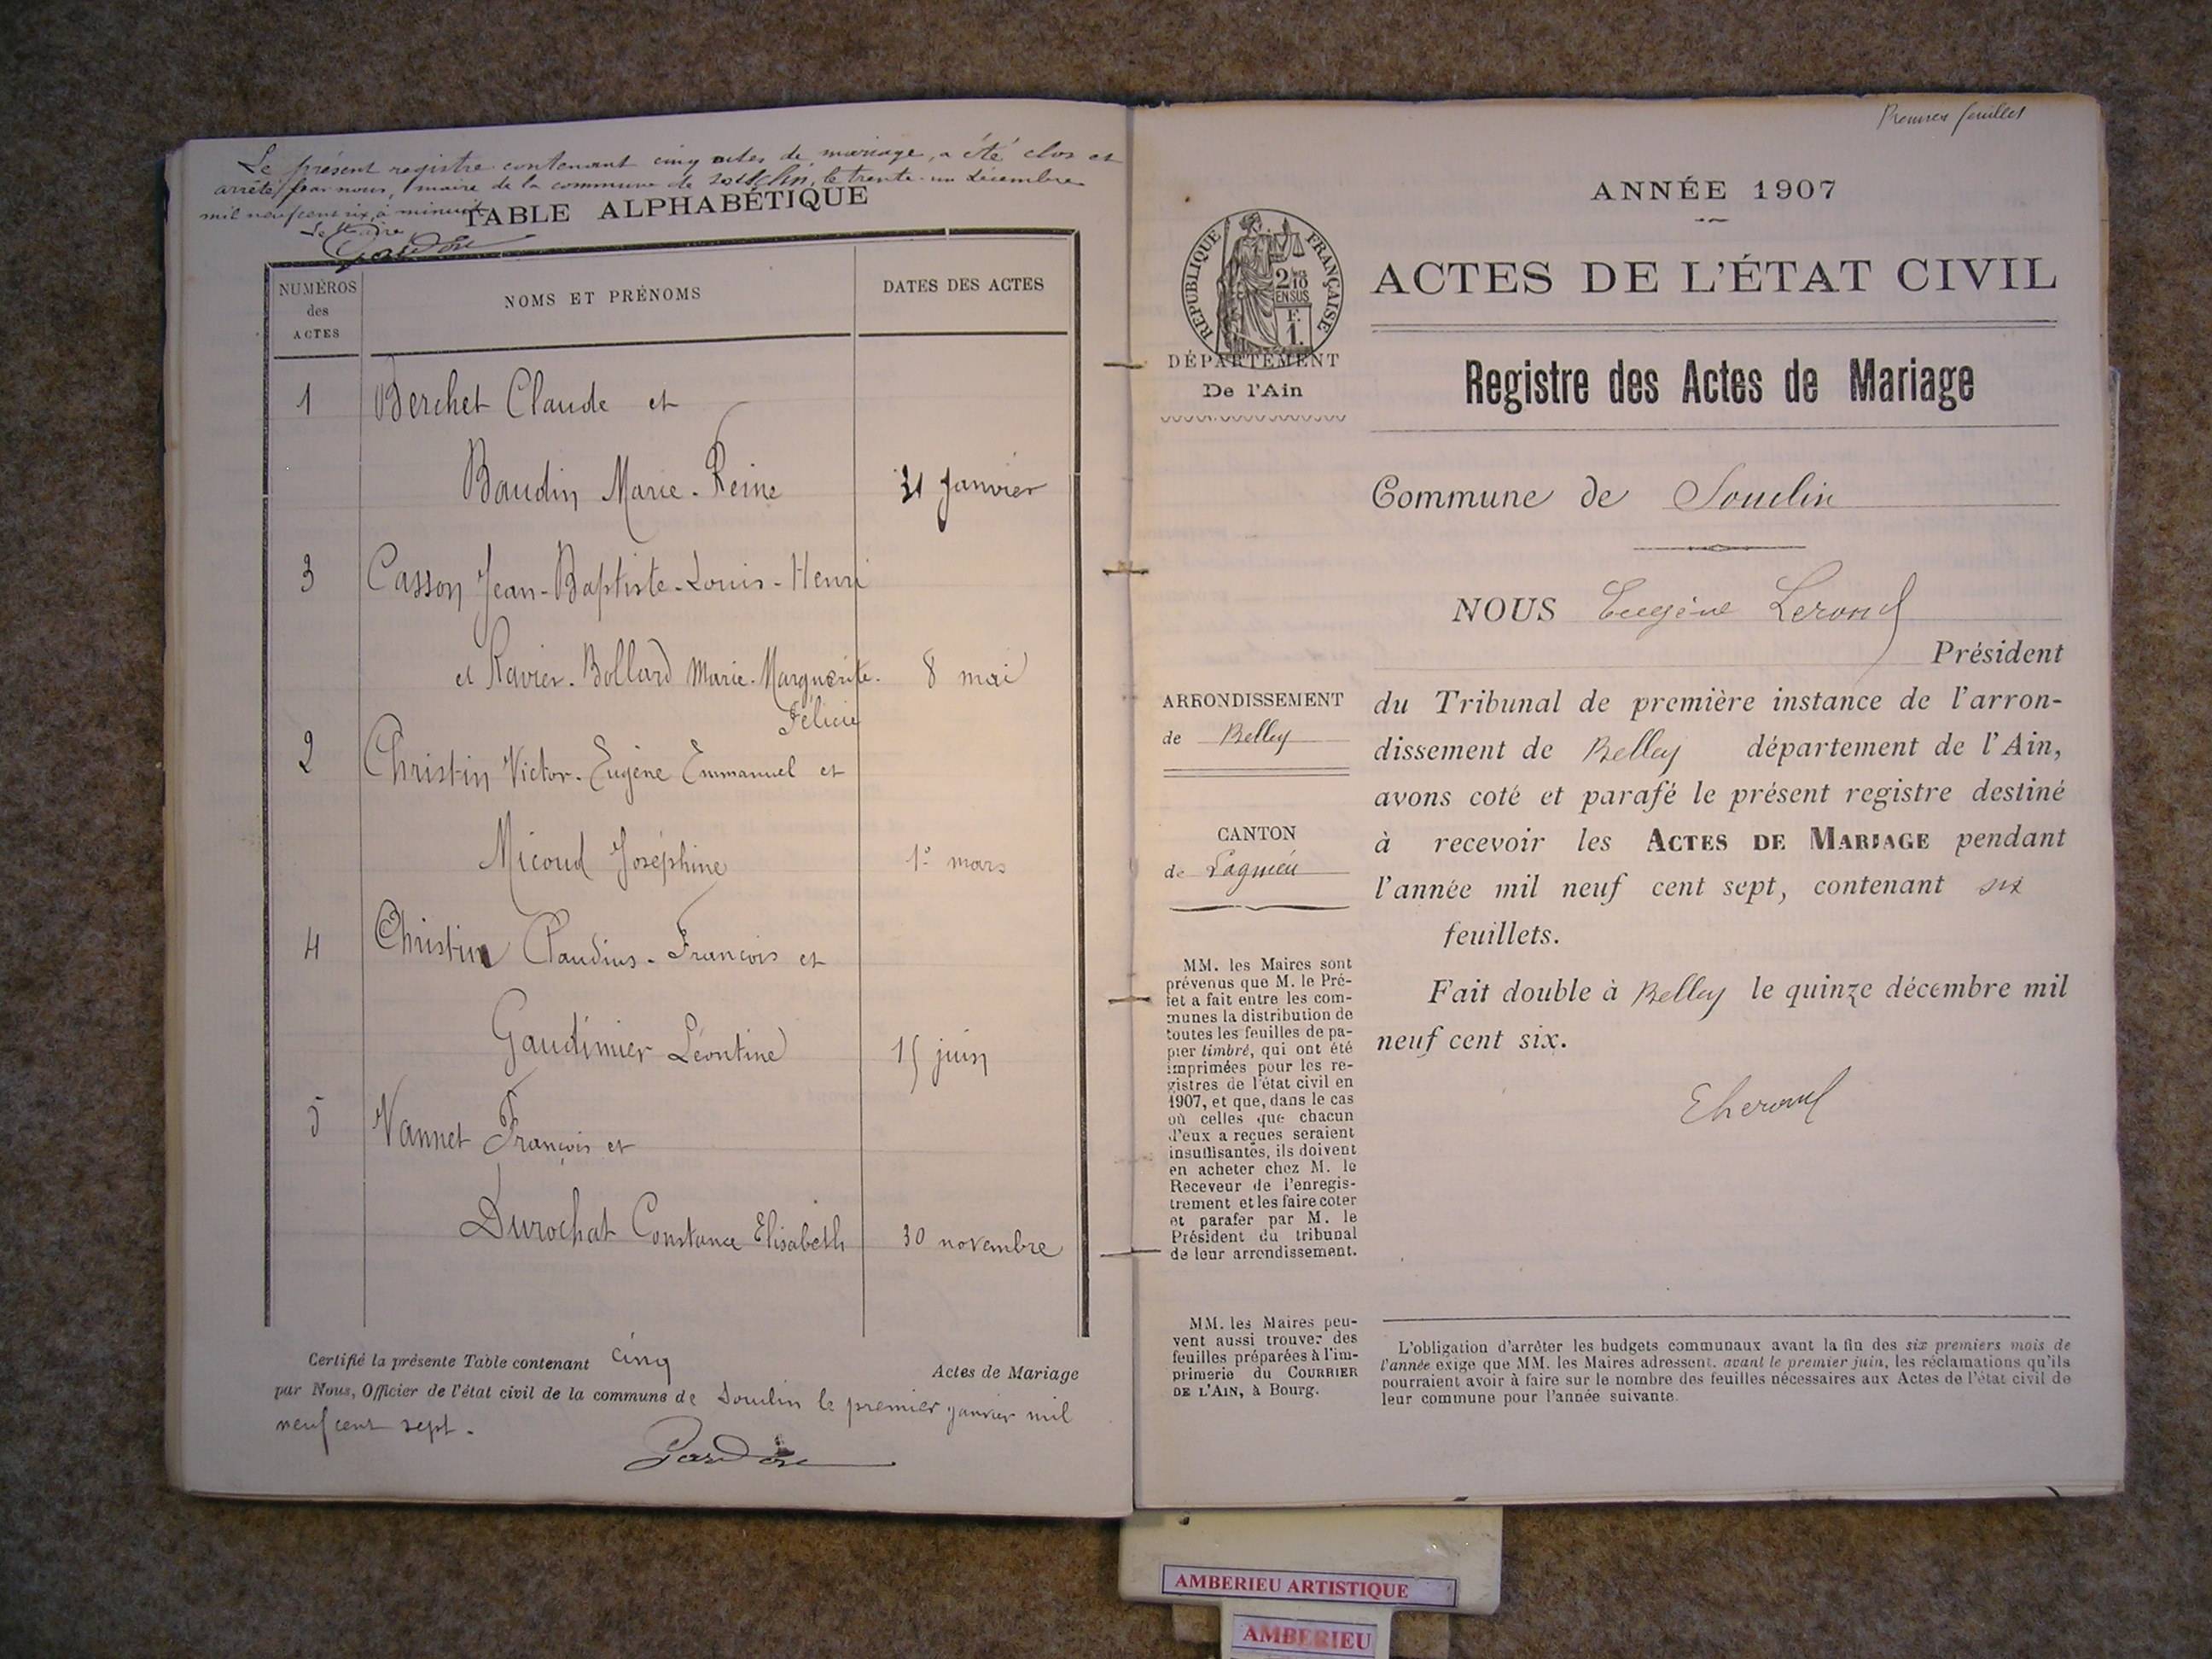 Le présent registre contenant cinq actes de mariage, a été clos et
arrêté par nous, maire de la commune de Souclin, le trente-un décembre
mil neuf cent six, à minuit
Le Maire
TABLE ALPHABÉTIQUE
NUMÉROS
des
ACTES
NOMS ET PRÉNOMS
DATES DES ACTES
1 Berchet Claude et
Baudin Marie-Reine 31 janvier
3 Casson Jean-Baptiste-Louis-Henri
et Ravier-Bollard Marie-Marguerite- 8 mai
Félicie
2 Christin Victor-Eugène Emmanuel et
Micoud Joséphine 1º mars
4 Christin Claudius-François et
Gaudimier Léontine 15 juin
5 Vannet François et
Durochat Constance Elisabeth 30 novembre
Certifié la présente Table contenant cinq Actes de Mariage
par Nous, Officier de l'état civil de la commune de Souclin le premier janvier mil
neuf cent sept.
Premier feuillet
ANNÉE 1907
RÉPUBLIQUE FRANÇAISE
2/10
EN SUS
F.
1.
ACTES DE L'ÉTAT CIVIL
DÉPARTEMENT
De l'Ain
Registre des Actes de Mariage
Commune de Souclin
NOUS Eugène Lerond
Président
du Tribunal de première instance de l'arron-
dissement de Belley département de l'Ain,
avons coté et parafé le présent registre destiné
à recevoir les ACTES DE MARIAGE pendant
l'année mil neuf cent sept, contenant six
feuillets.
Fait double à Belley le quinze décembre mil
neuf cent six.
ELerond
ARRONDISSEMENT
de Belley
CANTON
de Lagnieu
MM. les Maires sont
prévenus que M. le Pré-
fet a fait entre les com-
munes la distribution de
toutes les feuilles de pa-
pier timbré, qui ont été
imprimées pour les re-
gistres de l'état civil en
1907, et que, dans le cas
où celles que chacun
d'eux a reçues seraient
insuffisantes, ils doivent
en acheter chez M. le
Receveur de l'enregis-
trement et les faire coter
et parafer par M. le
Président du tribunal
de leur arrondissement.
MM. les Maires peu-
vent aussi trouver des
feuilles préparées à l'im-
primerie du COURRIER
DE L'AIN, à Bourg.
L'obligation d'arrêter les budgets communaux avant la fin des six premiers mois de
l'année exige que MM. les Maires adressent, avant le premier juin, les réclamations qu'ils
pourraient avoir à faire sur le nombre des feuilles nécessaires aux Actes de l'état civil de
leur commune pour l'année suivante.
AMBERIEU ARTISTIQUE
AMBERIEU